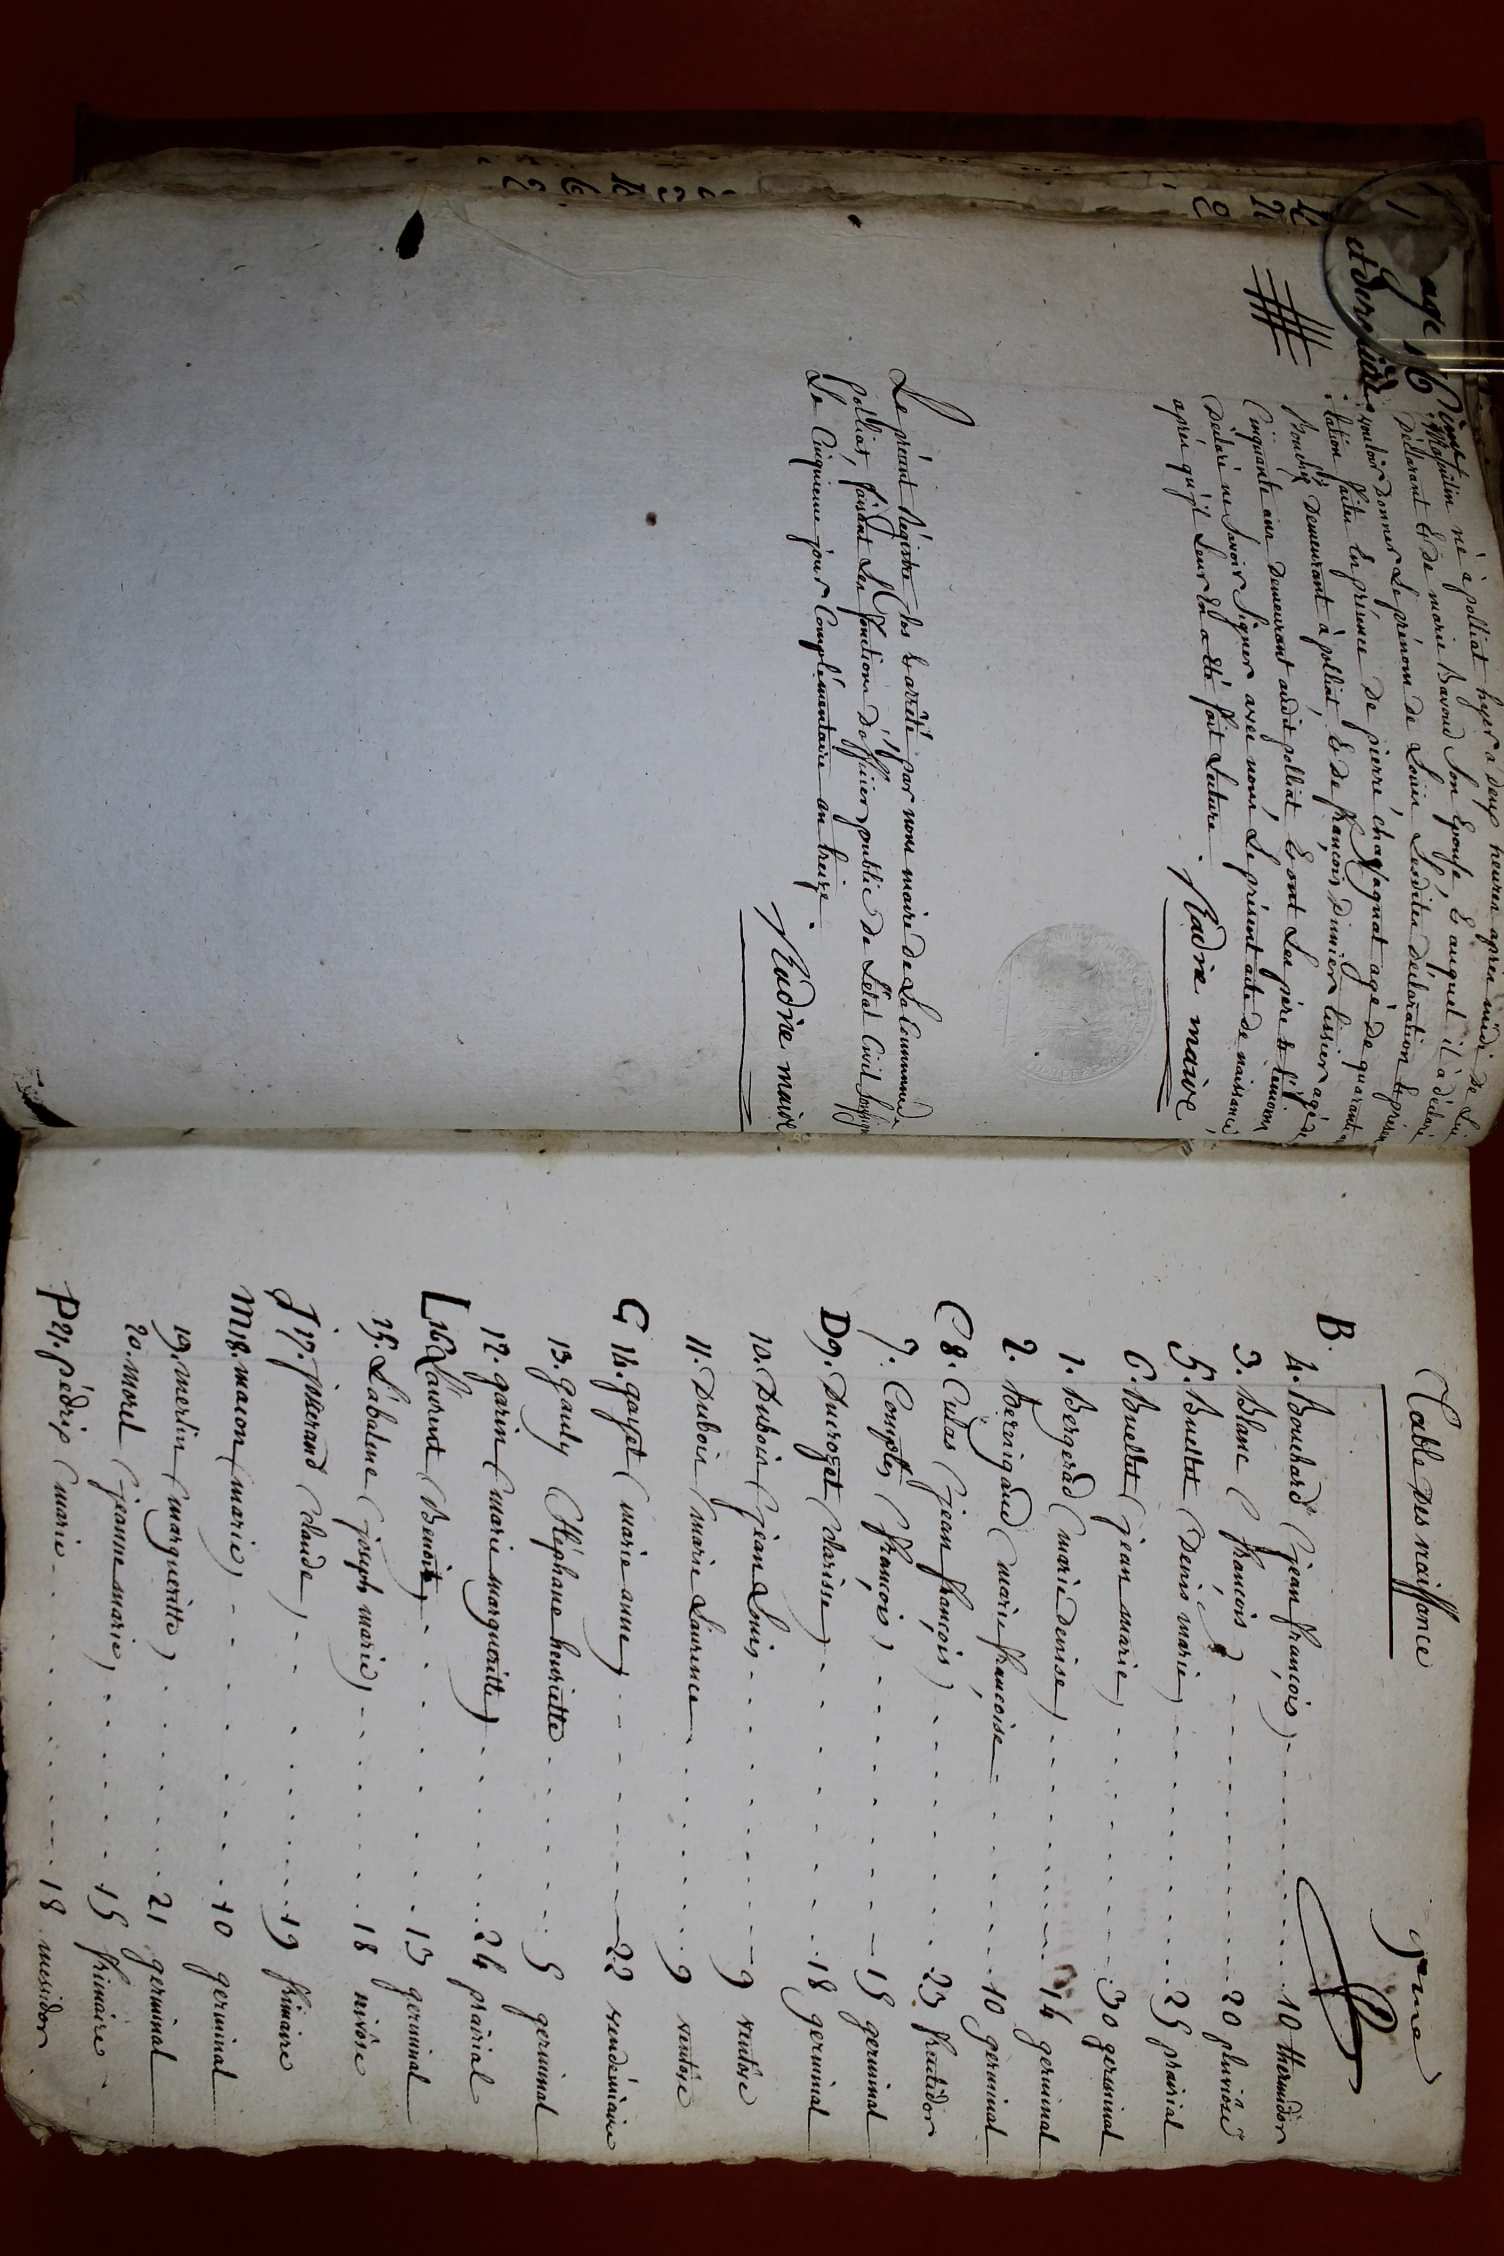 age 16
et dernière
masculin né à polliat hyer à deux heures après midi de Lui
Déclarant & de marie Bavoud Son Epouse, & auquel il à déclaré
vouloir Donner Le prénom de Louis Lesdites déclaration & présen
tation faites En présence de pierre chavagnat agé de quarante
Demeurant à polliat, & de françois Dunier tissier agé de
Cinquante ans Demeurant audit polliat & ont Les père & temoins
Déclaré ne Savoir Signer avec nous Le présent acte de naissance,
après qu'jl Leur En a été fait Lecture.
maire
Le présent Régistre clos & arrêté par nous maire de La Commune de
polliat, faisant Les fonctions d'officier public de L'état Civil Soussigné
Le Cinquieme jour Complémentaire an treize.
maire
Table Des naissance
B.
4. Bouchard (jean françois) 10 thermidor
3. Blanc (françois) 20 pluviôse
5. Buellet (Denis marie) 25 prairial
6. Buellet (jean marie) 30 germinal
1. Bergerad (marie Denise) 14 germinal
2. Bernigaud (marie françoise 10 germinal
C 8. Culas (jean françois) 23 fructidor
7. Comptes (françois) 15 germinal
D 9. Ducrozet (clarisse) 18 germinal
10. Dubois (jean Louis 9 ventôse
11. Dubois (marie Laurence 9 ventôse
G 14. gayet (marie anne) 22 vendémiaire
13. gauly (Stéphane henriette 5 germinal
12. garin (marie margueritte) 24 prairial
L 16 Laurent (Benoit) 13 germinal
15. Labalme (joseph marie) 18 nivôse
J 17. josserand (claude) 19 frimaire
M 18. macon (marie) 10 germinal
19. merlin (margueritte) 21 germinal
20. morel (jeanne marie) 15 frimaire
P 21. pédrix (marie 18 messidor